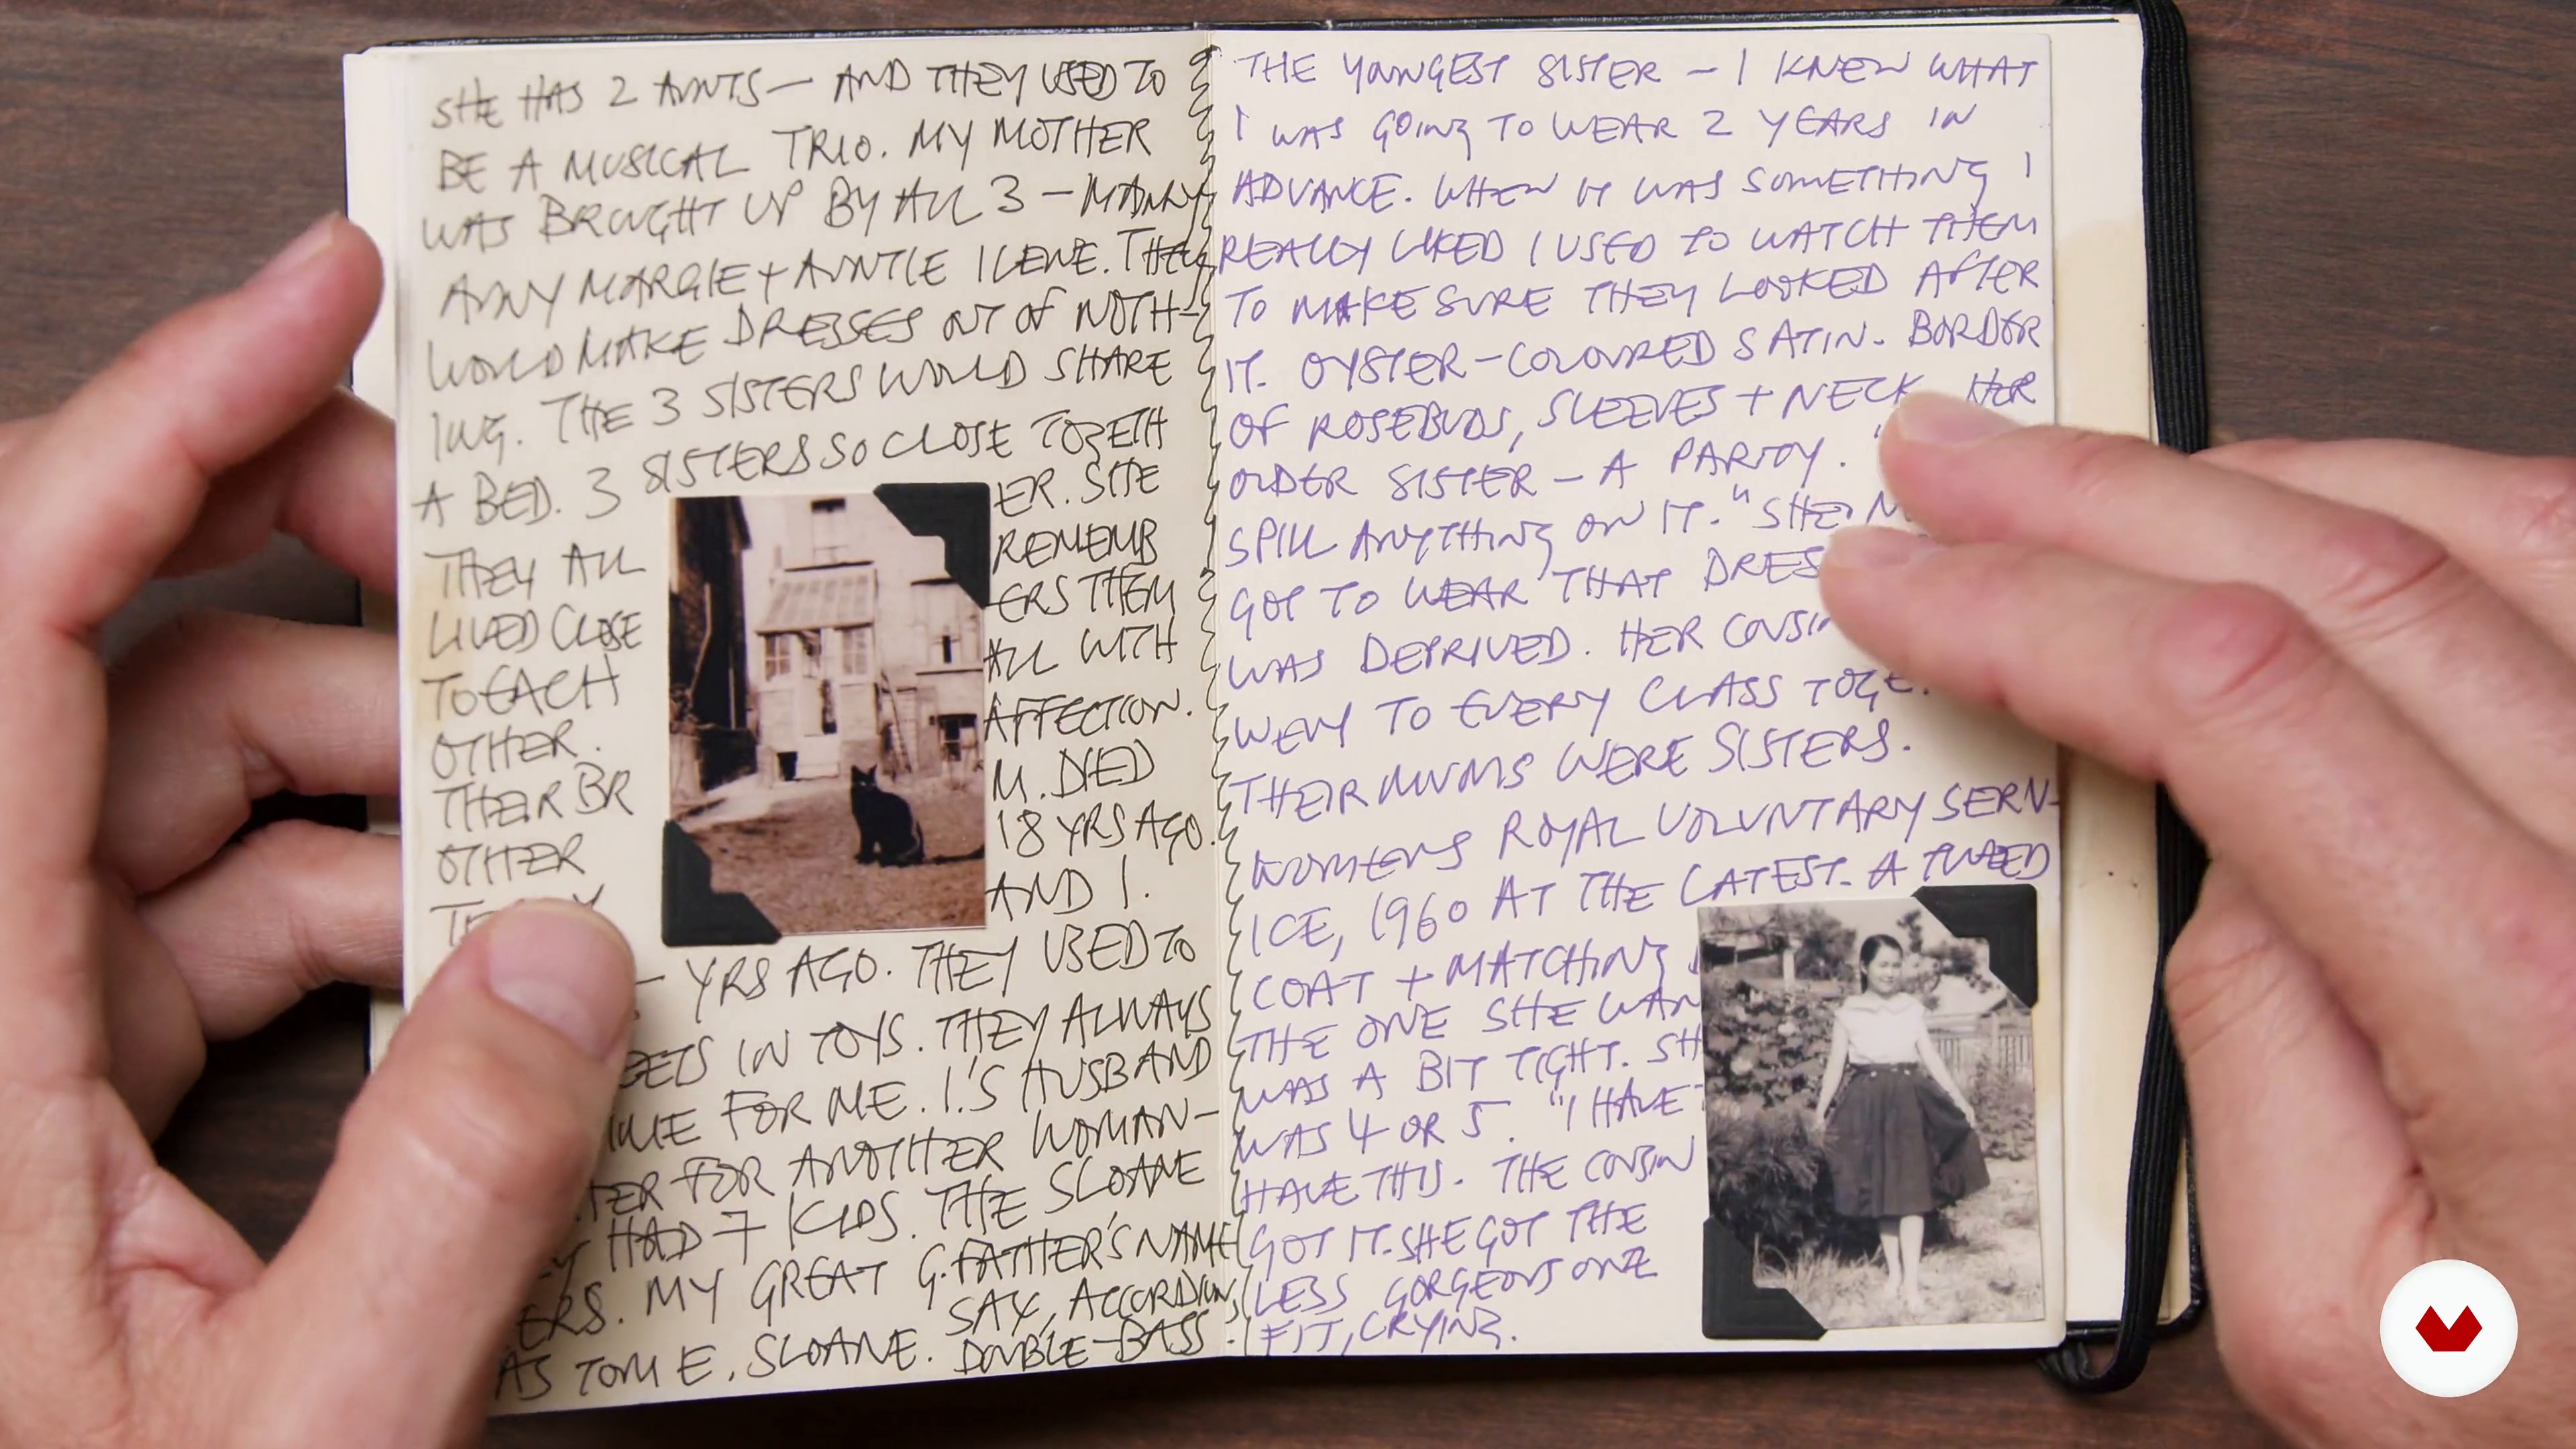 SHE HAS 2 AUNTS — AND THEY USED TO
BE A MUSICAL TRIO. MY MOTHER
WAS BROUGHT UP BY ALL 3 —
MARGIE + AUNTIE ILENE. THEY
WOULD MAKE DRESSES OUT OF NOTH-
ING. THE 3 SISTERS WOULD SHARE
A BED. 3 SISTERS SO CLOSE TOGETH
ER. SHE
REMEMB
ERS THEM
ALL WITH
AFFECTION.
M. DIED
18 YRS AGO.
AND I.
THEY ALL
LIVED CLOSE
TO EACH
OTHER.
THEIR BR
OTHER
— YRS AGO. THEY USED TO
IN TOYS. THEY ALWAYS
FOR ME. I.'S HUSBAND
FOR ANOTHER WOMAN —
HAD 7 KIDS. THE SLOANE
ERS. MY GREAT G.FATHER'S NAME
AS TOM E. SLOANE. SAX, ACCORDION,
DOUBLE-BASS.
THE YOUNGEST SISTER — I KNEW WHAT
I WAS GOING TO WEAR 2 YEARS IN
ADVANCE. WHEN IT WAS SOMETHING I
REALLY LIKED I USED TO WATCH THEM
TO MAKE SURE THEY LOOKED AFTER
IT. OYSTER-COLOURED SATIN. BORDER
OF ROSEBUDS, SLEEVES + NECK HER
OLDER SISTER — A PARTY.
SPILL ANYTHING ON IT." SHE
GOT TO WEAR THAT DRES
WAS DEPRIVED. HER COUSIN
WENT TO EVERY CLASS TOGE
THEIR MUMS WERE SISTERS.
WOMENS ROYAL VOLUNTARY SERV-
ICE, 1960 AT THE LATEST. A TWEED
COAT + MATCHING
THE ONE SHE WAN
WAS A BIT TIGHT. SH
WAS 4 OR 5. "I HAVE
HAVE THIS. THE COUSIN
GOT IT. SHE GOT THE
LESS GORGEOUS ONE
FIT, CRYING.